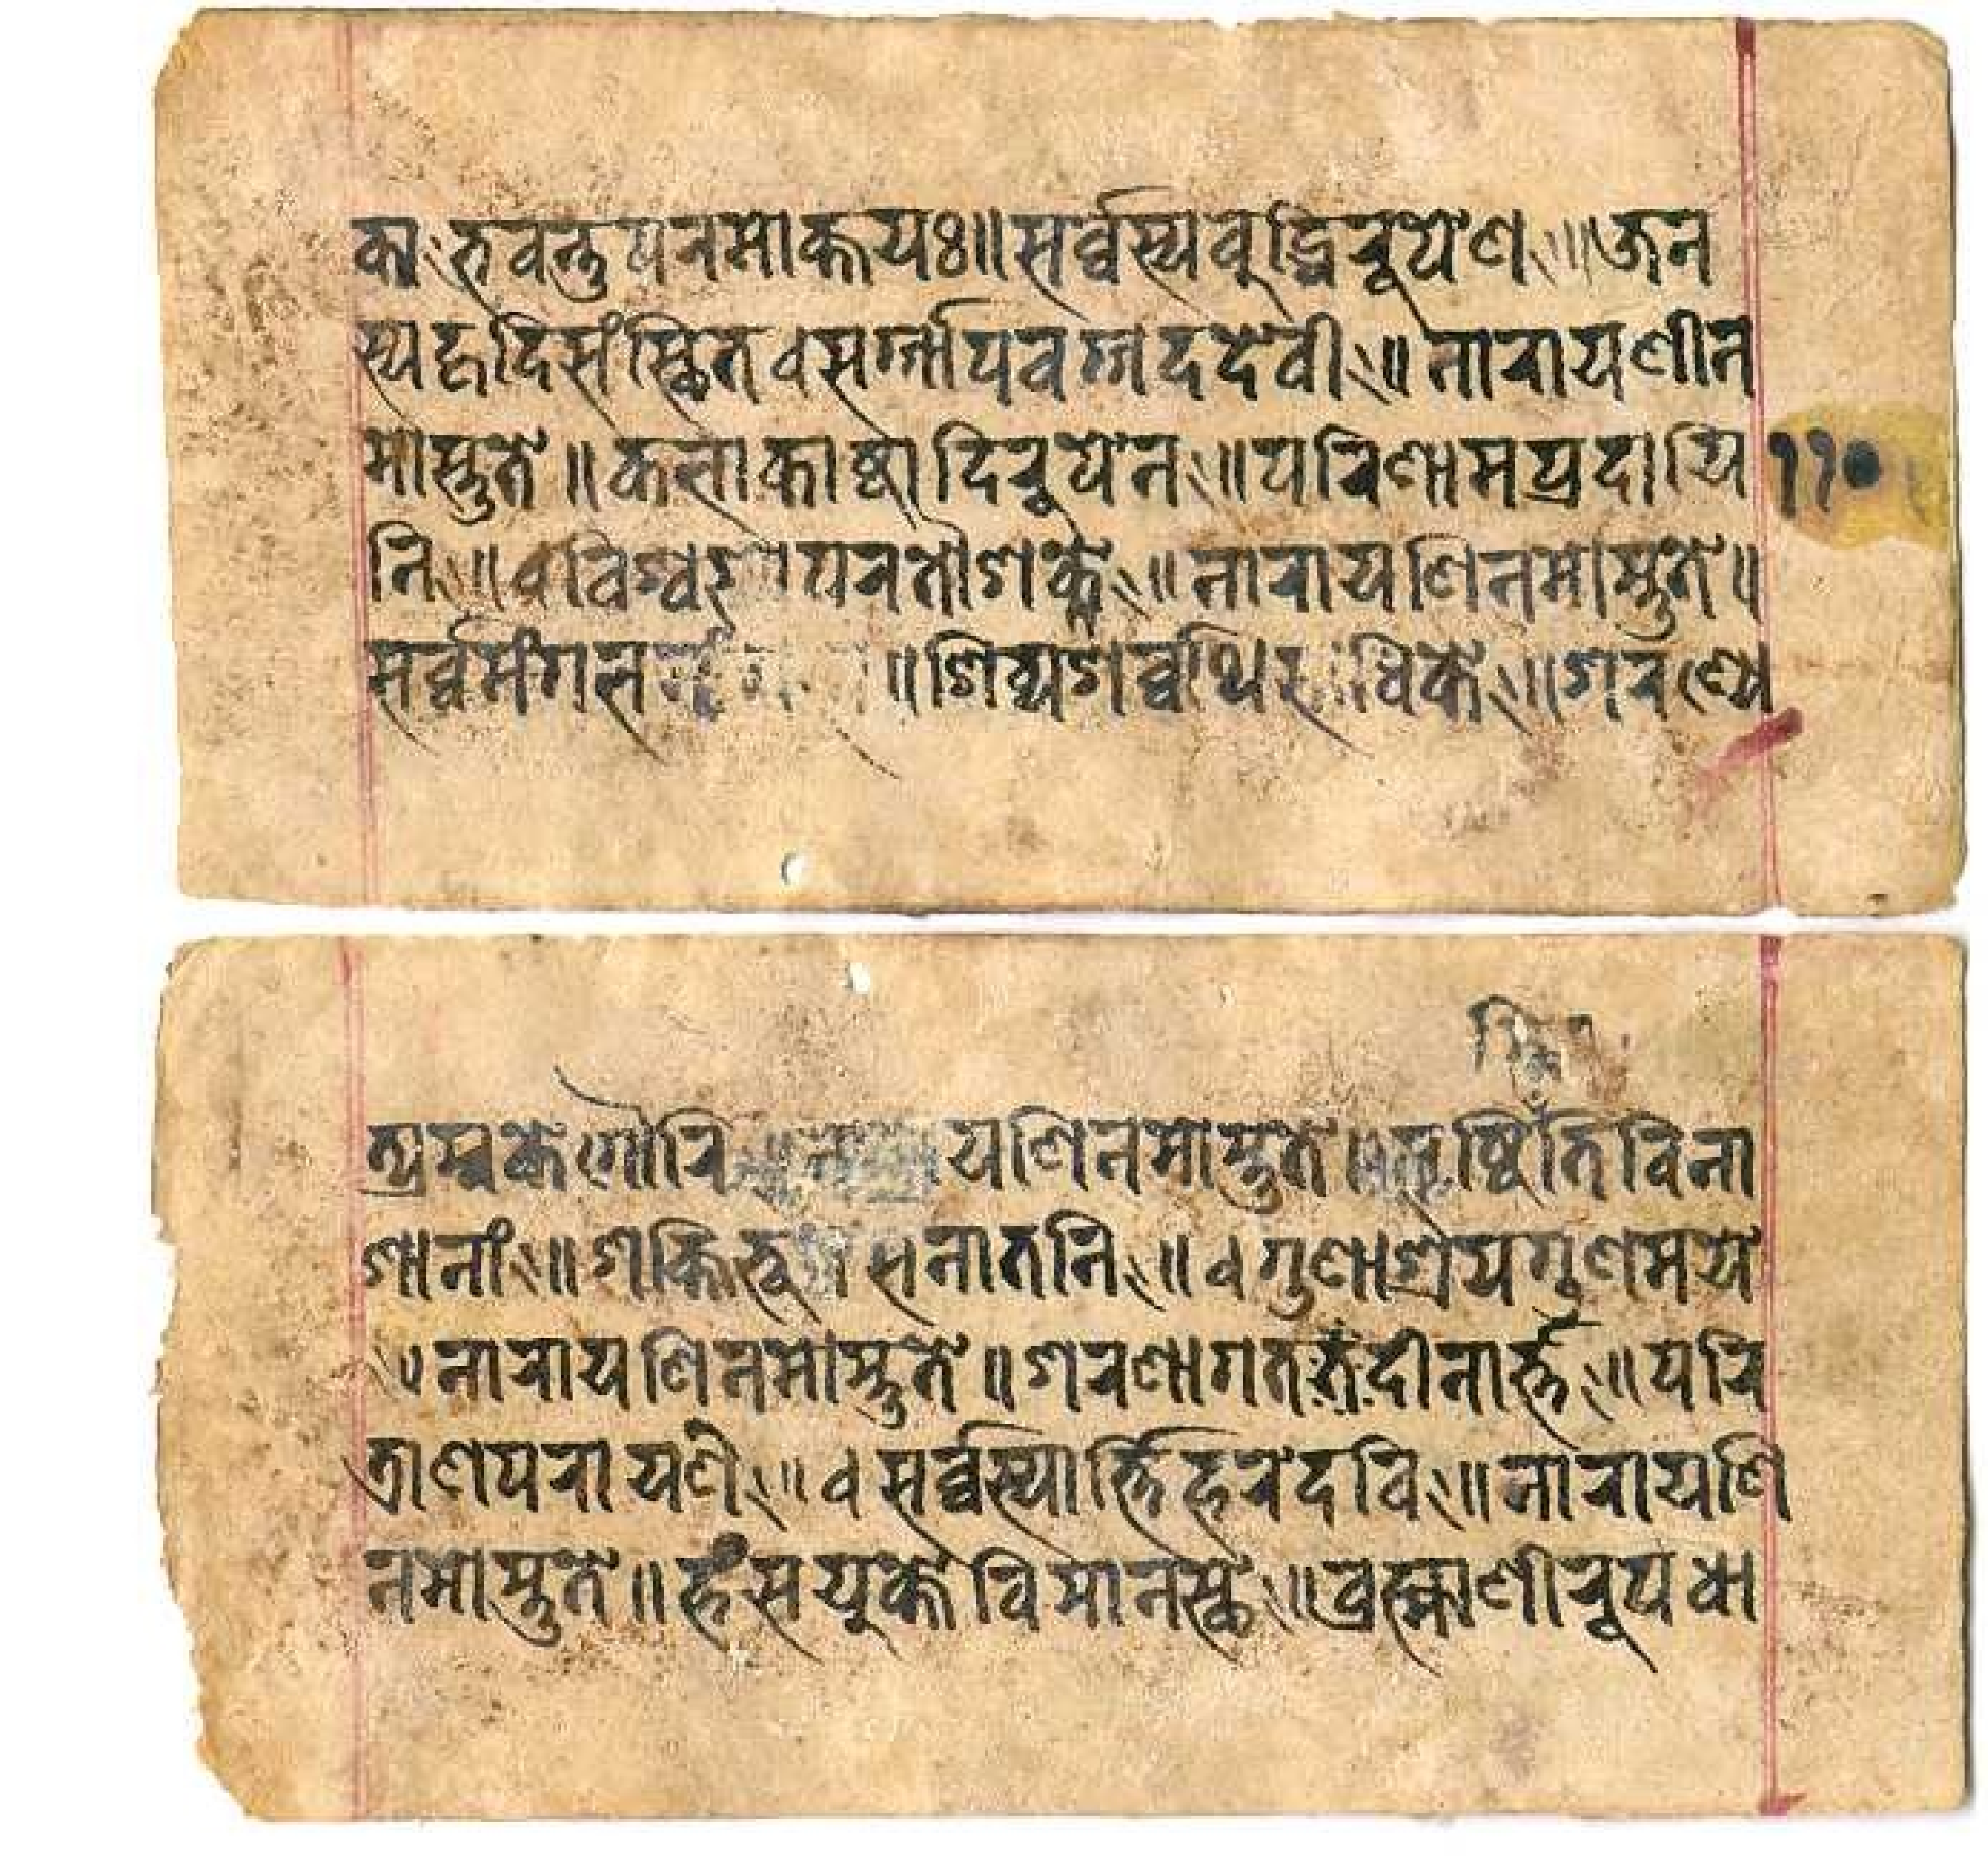 काः भवन्तु परमोक्तयः॥ सर्व्वस्य बुद्धिरूपेण ॥ जन
स्य हृदि संस्थिते व सर्गापवर्गदे देवी ॥ नारायणी न
मोस्तुते ॥ कलाकाष्ठादिरूपेन ॥ परिणामप्रदायि
११०
नि ॥ व विश्वस्योपरतौ शक्ते ॥ नारायणि नमोस्तुते ॥
सर्व्वमंगल ॥ शिवे सर्व्वार्थसाधिके ॥ शरण्ये
त्र्यम्बके गौरि ॥ नारायणि नमोस्तुते ॥ सृष्टिस्थिति विना
शानां ॥ शक्तिभूते सनातनि ॥ व गुणाश्रये गुणमये
॥ नारायणि नमोस्तुते ॥ शरणागत दीनार्त्त ॥ परि
त्राणपरायणे ॥ व सर्व्वस्यार्त्तिहरे देवि ॥ नारायणि
नमोस्तुते ॥ हंसयुक्ते विमानस्थे ॥ ब्रह्माणीरूपधा